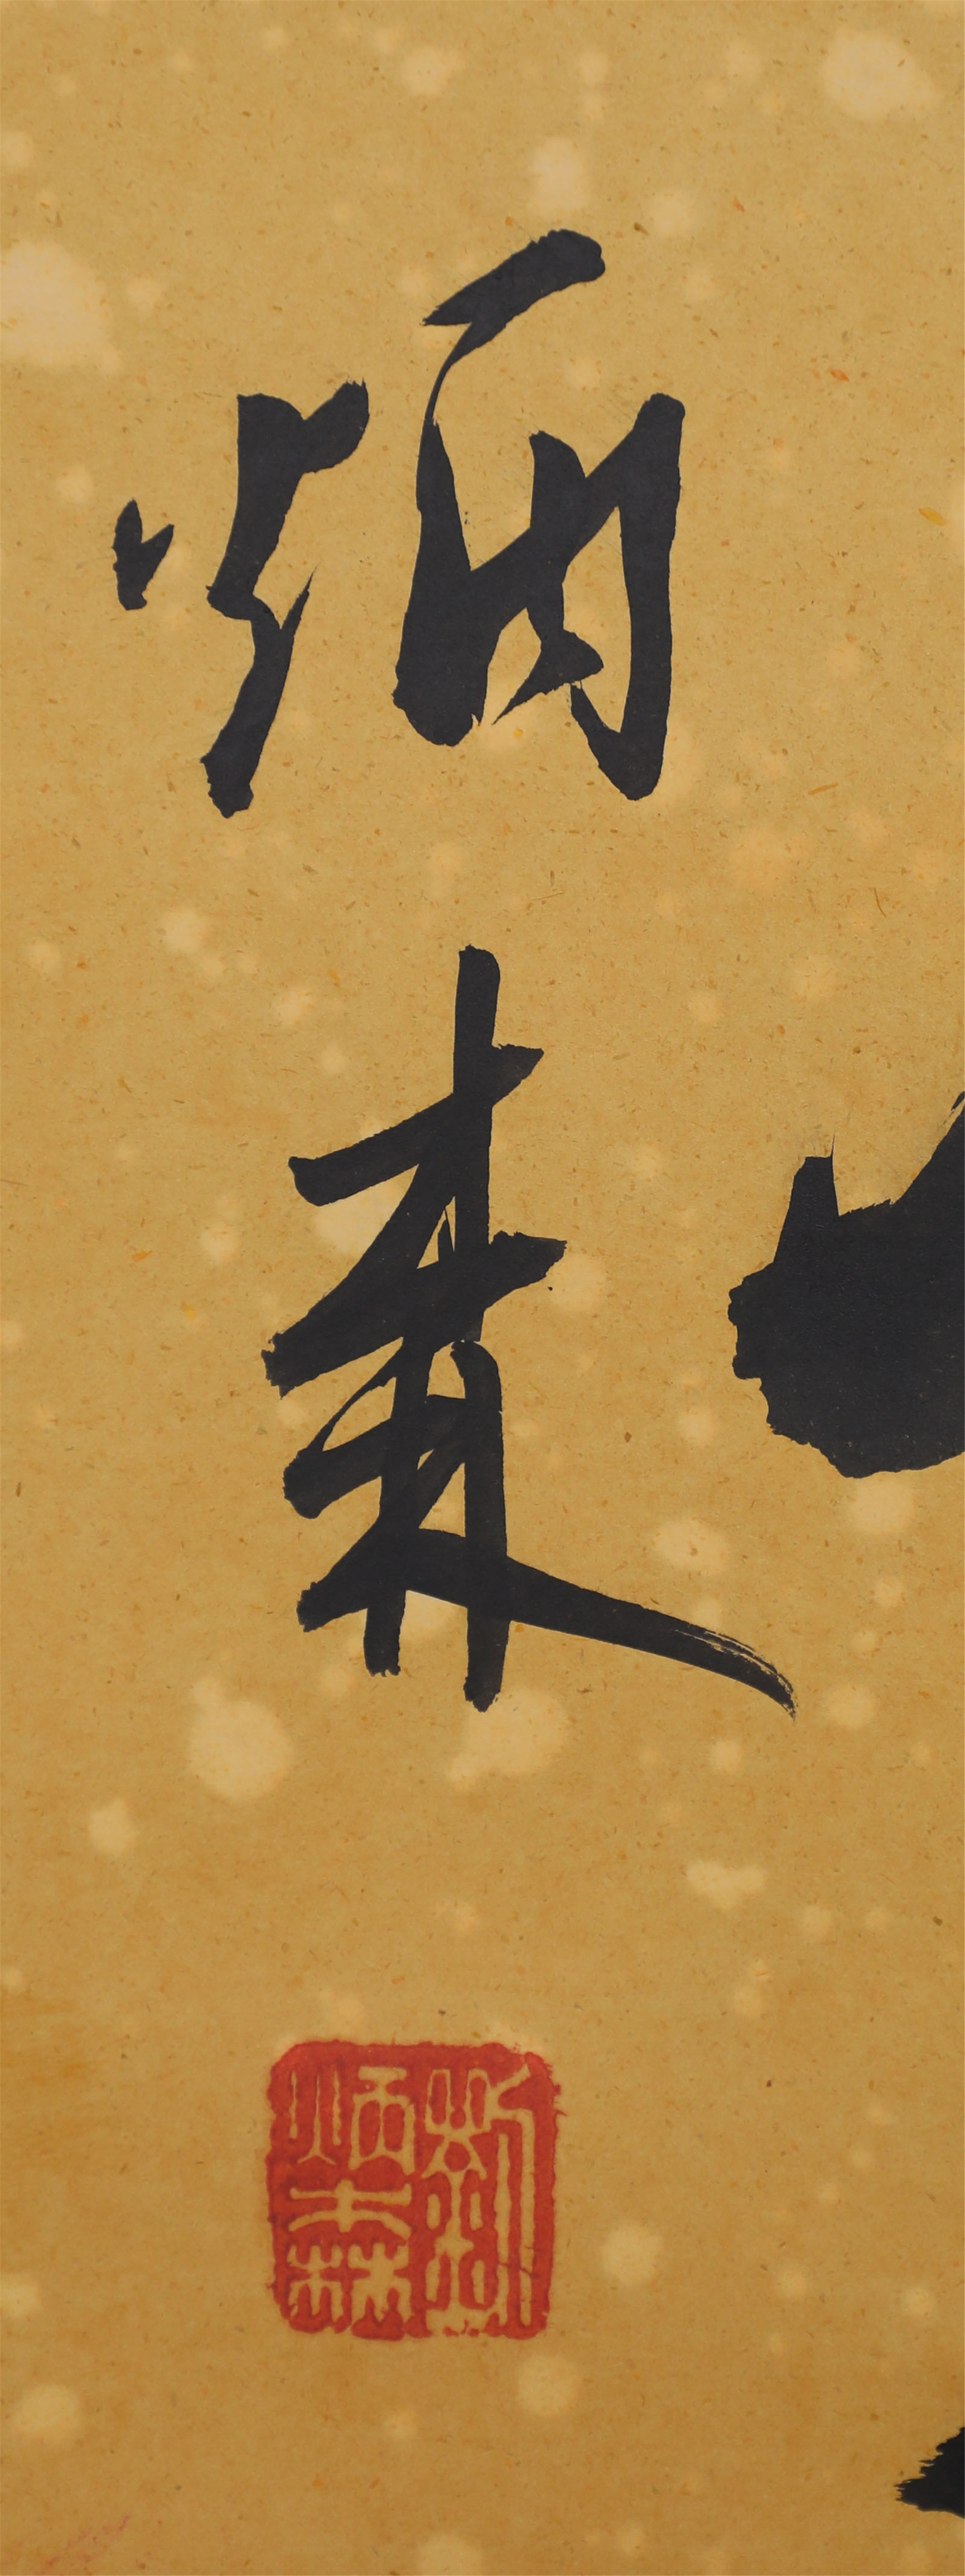 炳森
劉炳森